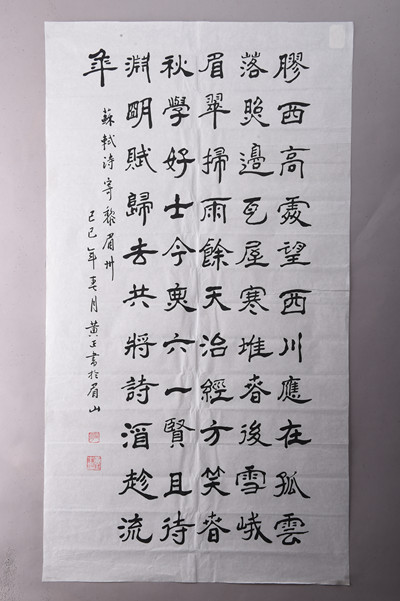 膠西高處望西川應在孤雲
落照邊瓦屋寒堆春後雪峨
眉翠掃雨餘天治經方笑春
秋學好士今無六一賢且待
淵明賦歸去共將詩酒趁流
年
蘇軾诗寄黎眉州
己巳年春月黄正書於眉山